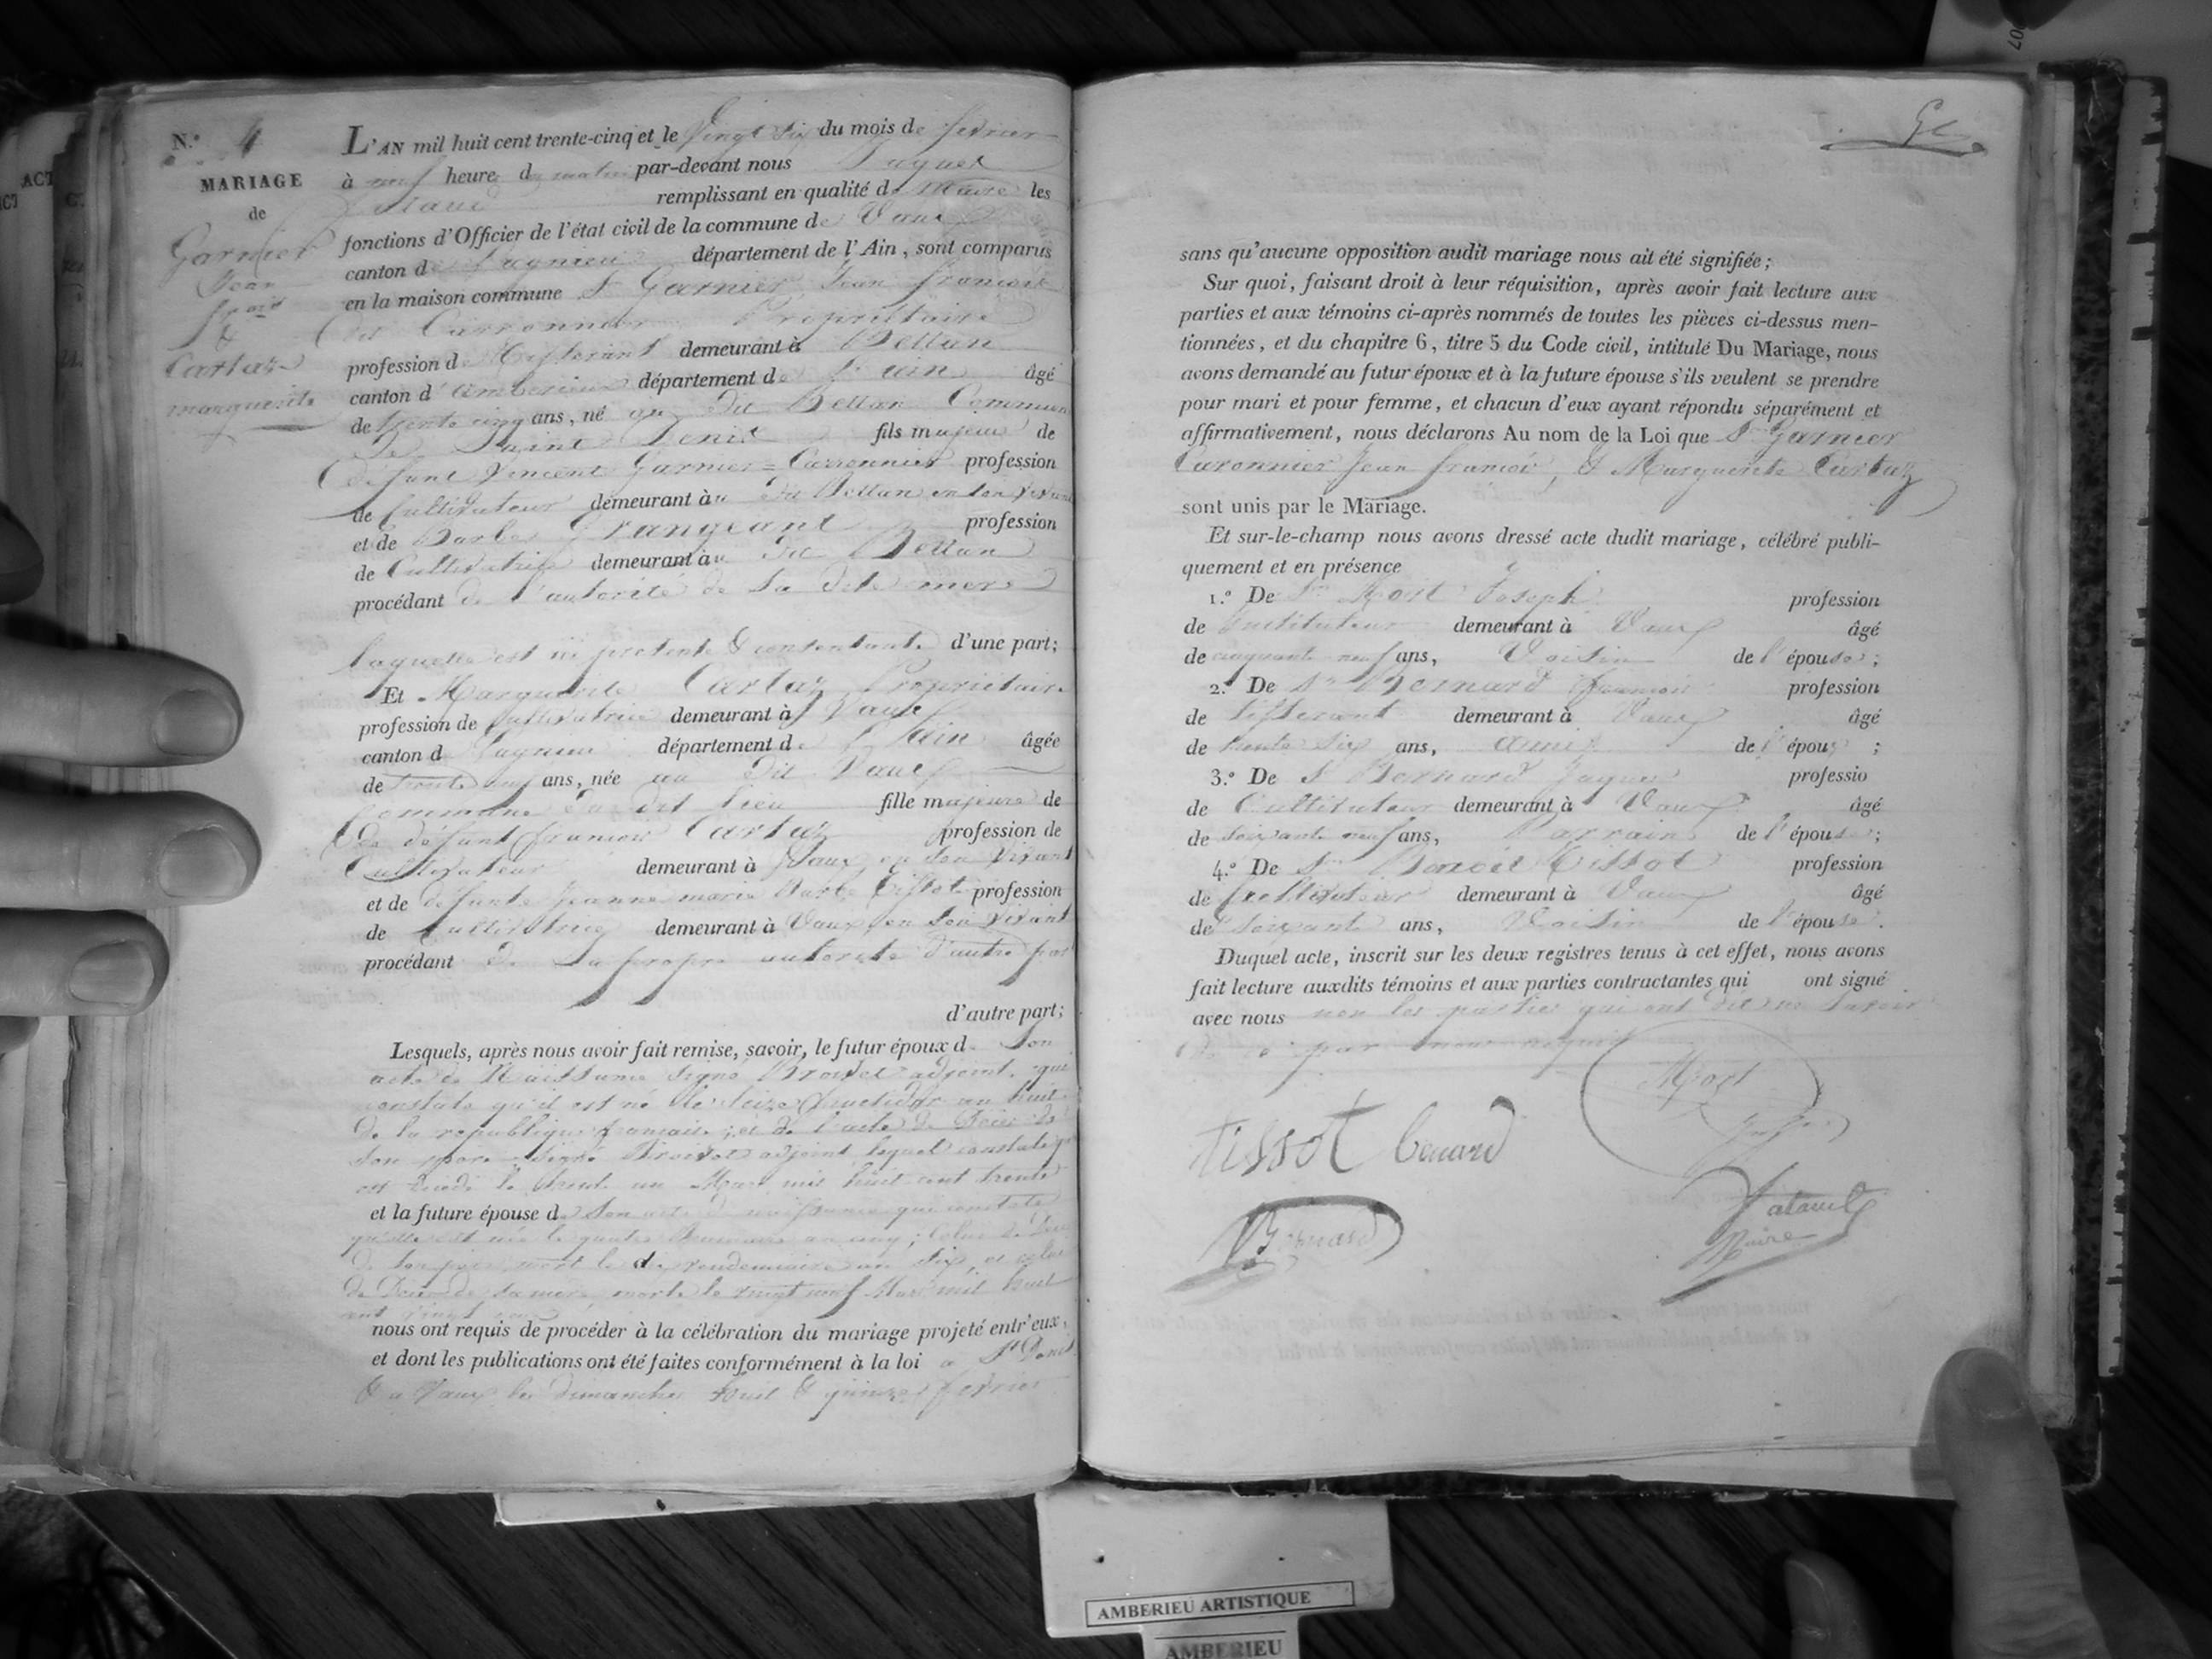 N.° 4
MARIAGE
de
Garnier
Jean
frois
&
Cartaz
marguerite
L'AN mil huit cent trente-cinq et le vingt six du mois de fevrier
à neuf heure du matin par-devant nous Jaques
remplissant en qualité de Maire les
fonctions d'Officier de l'état civil de la commune de Vaux
canton de Lagnieu département de l'Ain, sont comparus
en la maison commune Sr Garnier Jean francois
dit Carronnier Proprietaire
profession de Tisserant demeurant à Bettan
canton d'amberieux département de l'ain âgé
de trente cinq ans, né au dit Bettan Commune
de Saint Denis fils majeur de
défunt Vincent Garnier=Carronnier profession
de Cultivateur demeurant au dit Bettan en son vivant
et de Barbe Grangeant profession
de Cultivatrice demeurant au dit Bettan
procédant de l'autorité de sa dite mere
laquelle est ici presente & consentante d'une part;
Et Marguerite Cartaz Proprietaire
profession de Cultivatrice demeurant à Vaux
canton de Lagnieu département de l'Ain âgée
de trente neuf ans, née au dit Vaux
Commune du dit lieu fille majeure de
de défunt francois Cartaz profession de
Cultivateur demeurant à Vaux en son vivant
et de défunte Jeanne marie Barbe Tissot profession
de Cultivatrice demeurant à Vaux en son vivant
procédant de sa propre autorité d'autre part
d'autre part;
Lesquels, après nous avoir fait remise, savoir, le futur époux de son
acte de Naissance signé adjoint, qui
constate qu'il est né le seize fructidor an huit
de la republique francaise; et de l'acte de Décès de
son pere signé adjoint lequel constate qu
est décédé le trente un Mars mil huit cent trente
et la future épouse de son acte de naissance qui constate
qu'elle est née le quatre an cinq; celui de Décès
de son pere mort le dix vendemiaire an six, et celui
de Décès de sa mere, morte le vingt neuf Mars mil huit
cent vingt
nous ont requis de procéder à la célébration du mariage projeté entr'eux,
et dont les publications ont été faites conformément à la loi a St Denis
& a Vaux les dimanches huit & quinze fevrier
sans qu'aucune opposition audit mariage nous ait été signifiée;
Sur quoi, faisant droit à leur réquisition, après avoir fait lecture aux
parties et aux témoins ci-après nommés de toutes les pièces ci-dessus men-
tionnées, et du chapitre 6, titre 5 du Code civil, intitulé Du Mariage, nous
avons demandé au futur époux et à la future épouse s'ils veulent se prendre
pour mari et pour femme, et chacun d'eux ayant répondu séparément et
affirmativement, nous déclarons Au nom de la Loi que Sr Garnier
Caronnier Jean francois, & Marguerite Cartaz
sont unis par le Mariage.
Et sur-le-champ nous avons dressé acte dudit mariage, célébré publi-
quement et en présence
1.° De Sr Mort Joseph profession
de Instituteur demeurant à Vaux âgé
de cinquante neuf ans, Voisin de l'épouse;
2.° De Sr Bernard francois profession
de Tisserant demeurant à Vaux âgé
de trente six ans, ami de l'époux;
3.° De Sr Bernard Jaques professio
de Cultivateur demeurant à Vaux âgé
de soixante neuf ans, Parrain de l'épouse;
4.° De Sr Benoit Tissot profession
de Cultivateur demeurant à Vaux âgé
de soixante ans, Voisin de l'épouse.
Duquel acte, inscrit sur les deux registres tenus à cet effet, nous avons
fait lecture auxdits témoins et aux parties contractantes qui ont signé
avec nous non les parties qui ont dit ne savoir
de ce par nous requis
Mort
Tissot benard
Bernard
Maire
AMBERIEU ARTISTIQUE
AMBERIEU